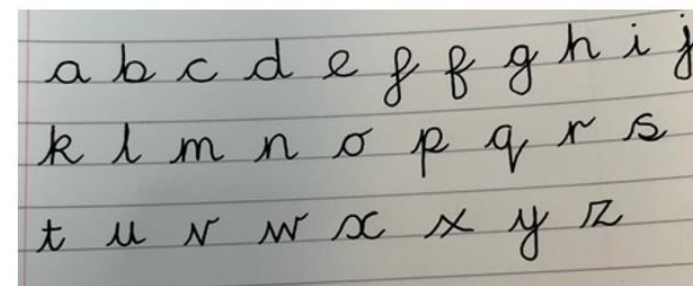 a b c d e f f g h i j
k l m n o p q r s
t u v w x x y z